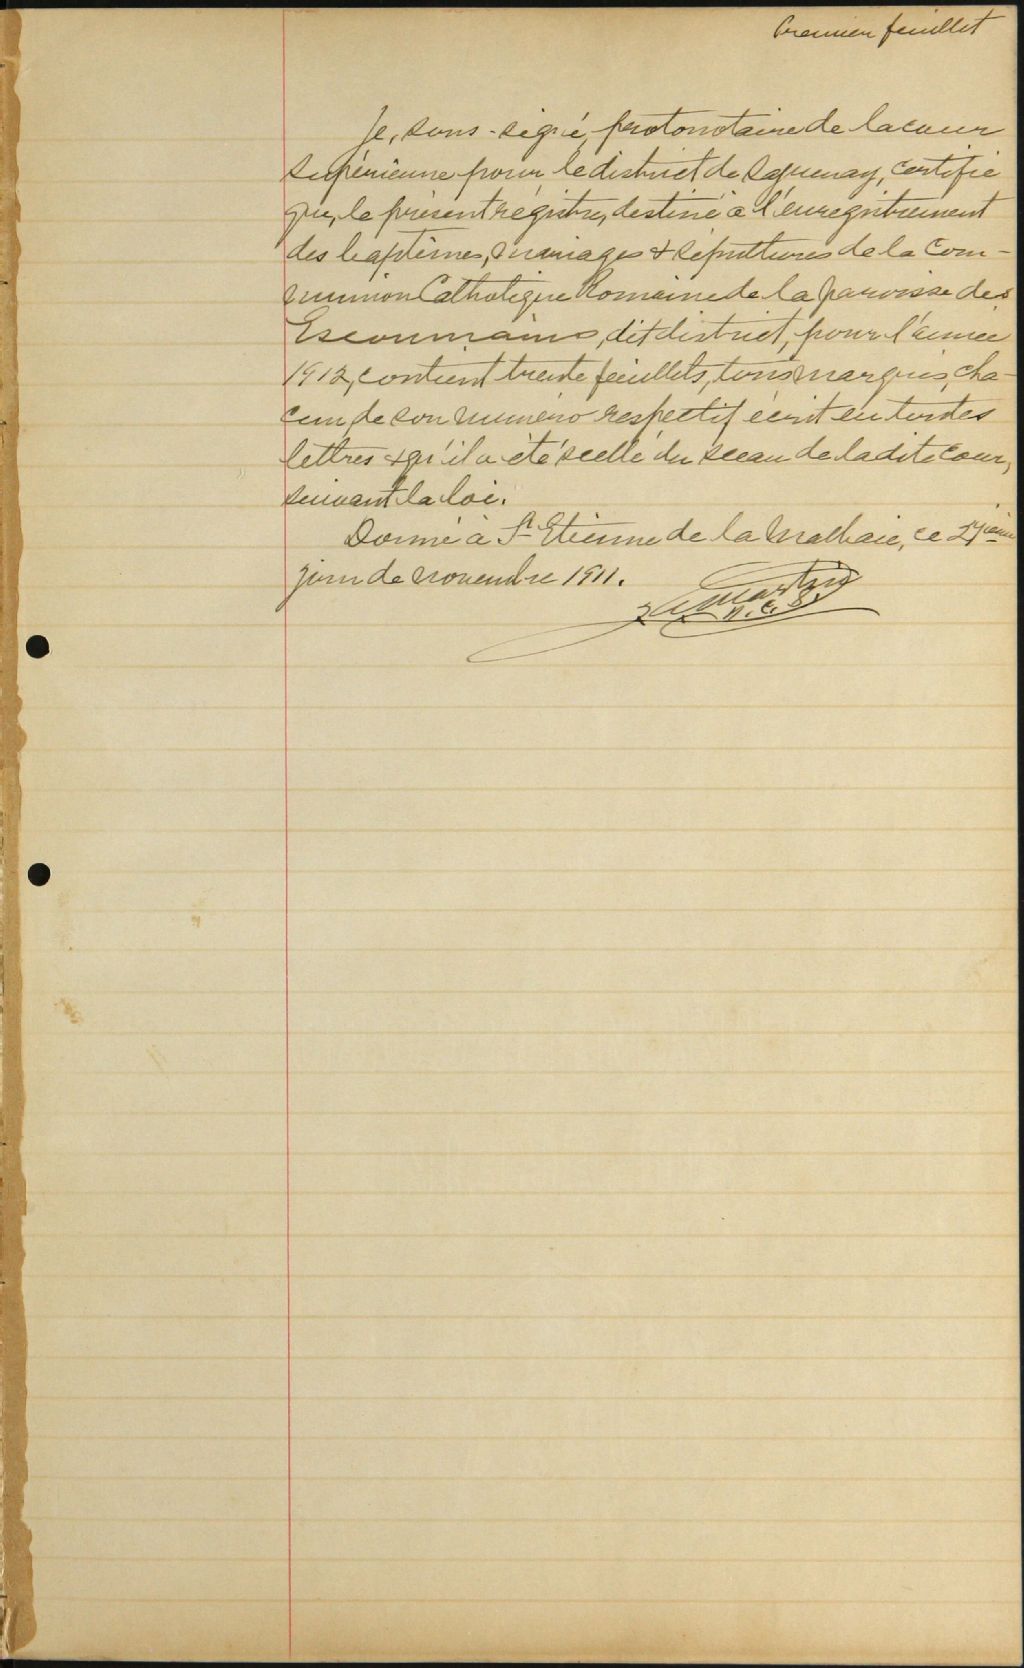 Premier feuillet
Je, sous-signé, protonotaire de la cour
supérieure pour le district de Saguenay, certifie
que, le présent régistre, destiné à l'enregistrement
des baptêmes, mariages & sépultures de la Com-
munion Catholique Romaine de la paroisse des
Escoumains, dit district, pour l'année
1912, contient trente feuillets, tous marqués, cha-
cun, de son numéro respectif écrit en toutes
lettres & qu'il a été scellé du sceau de ladite cour,
suivant la loi.
Donné à St Etienne de la Malbaie, ce 27ième
jour de novembre 1911.
Martin